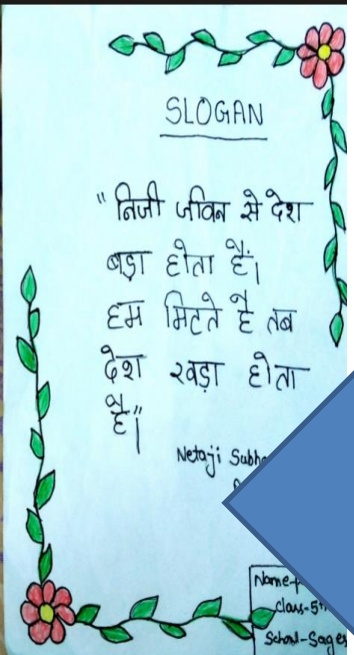 SLOGAN
"निजी जीवन से देश
बड़ा होता हैं।
हम मिटते है तब
देश खड़ा होता
है।"
Netaji
Name-
Class-5th
School-Sages